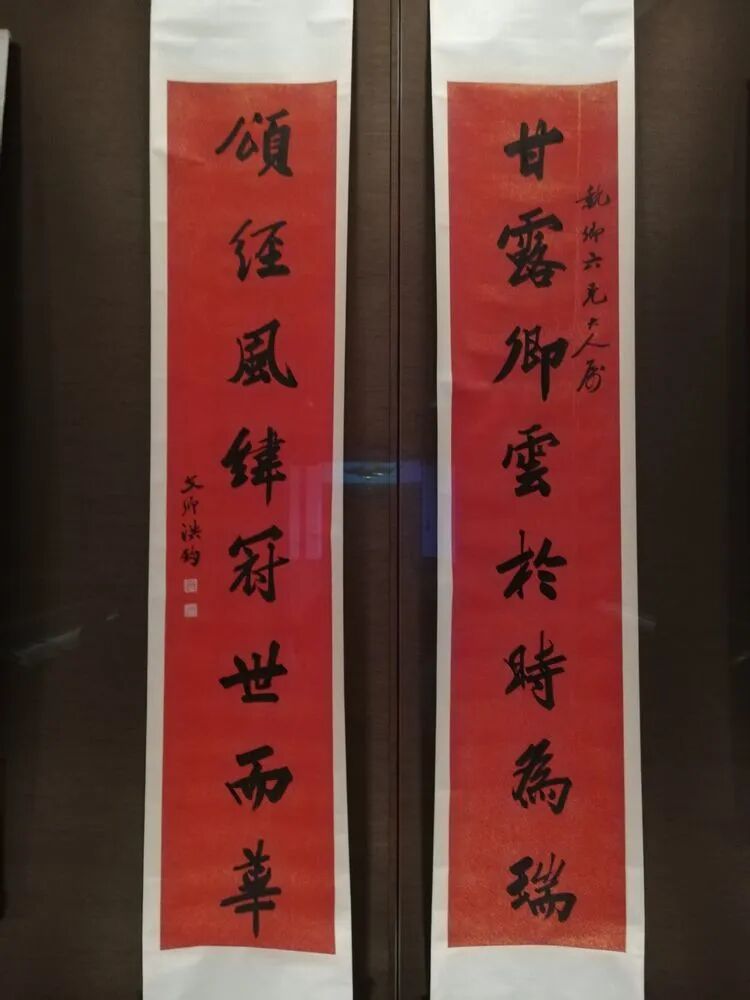 甘露卿雲於時為瑞
執卿六兄大人屬
頌經風緯冠世而華
文卿洪鈞